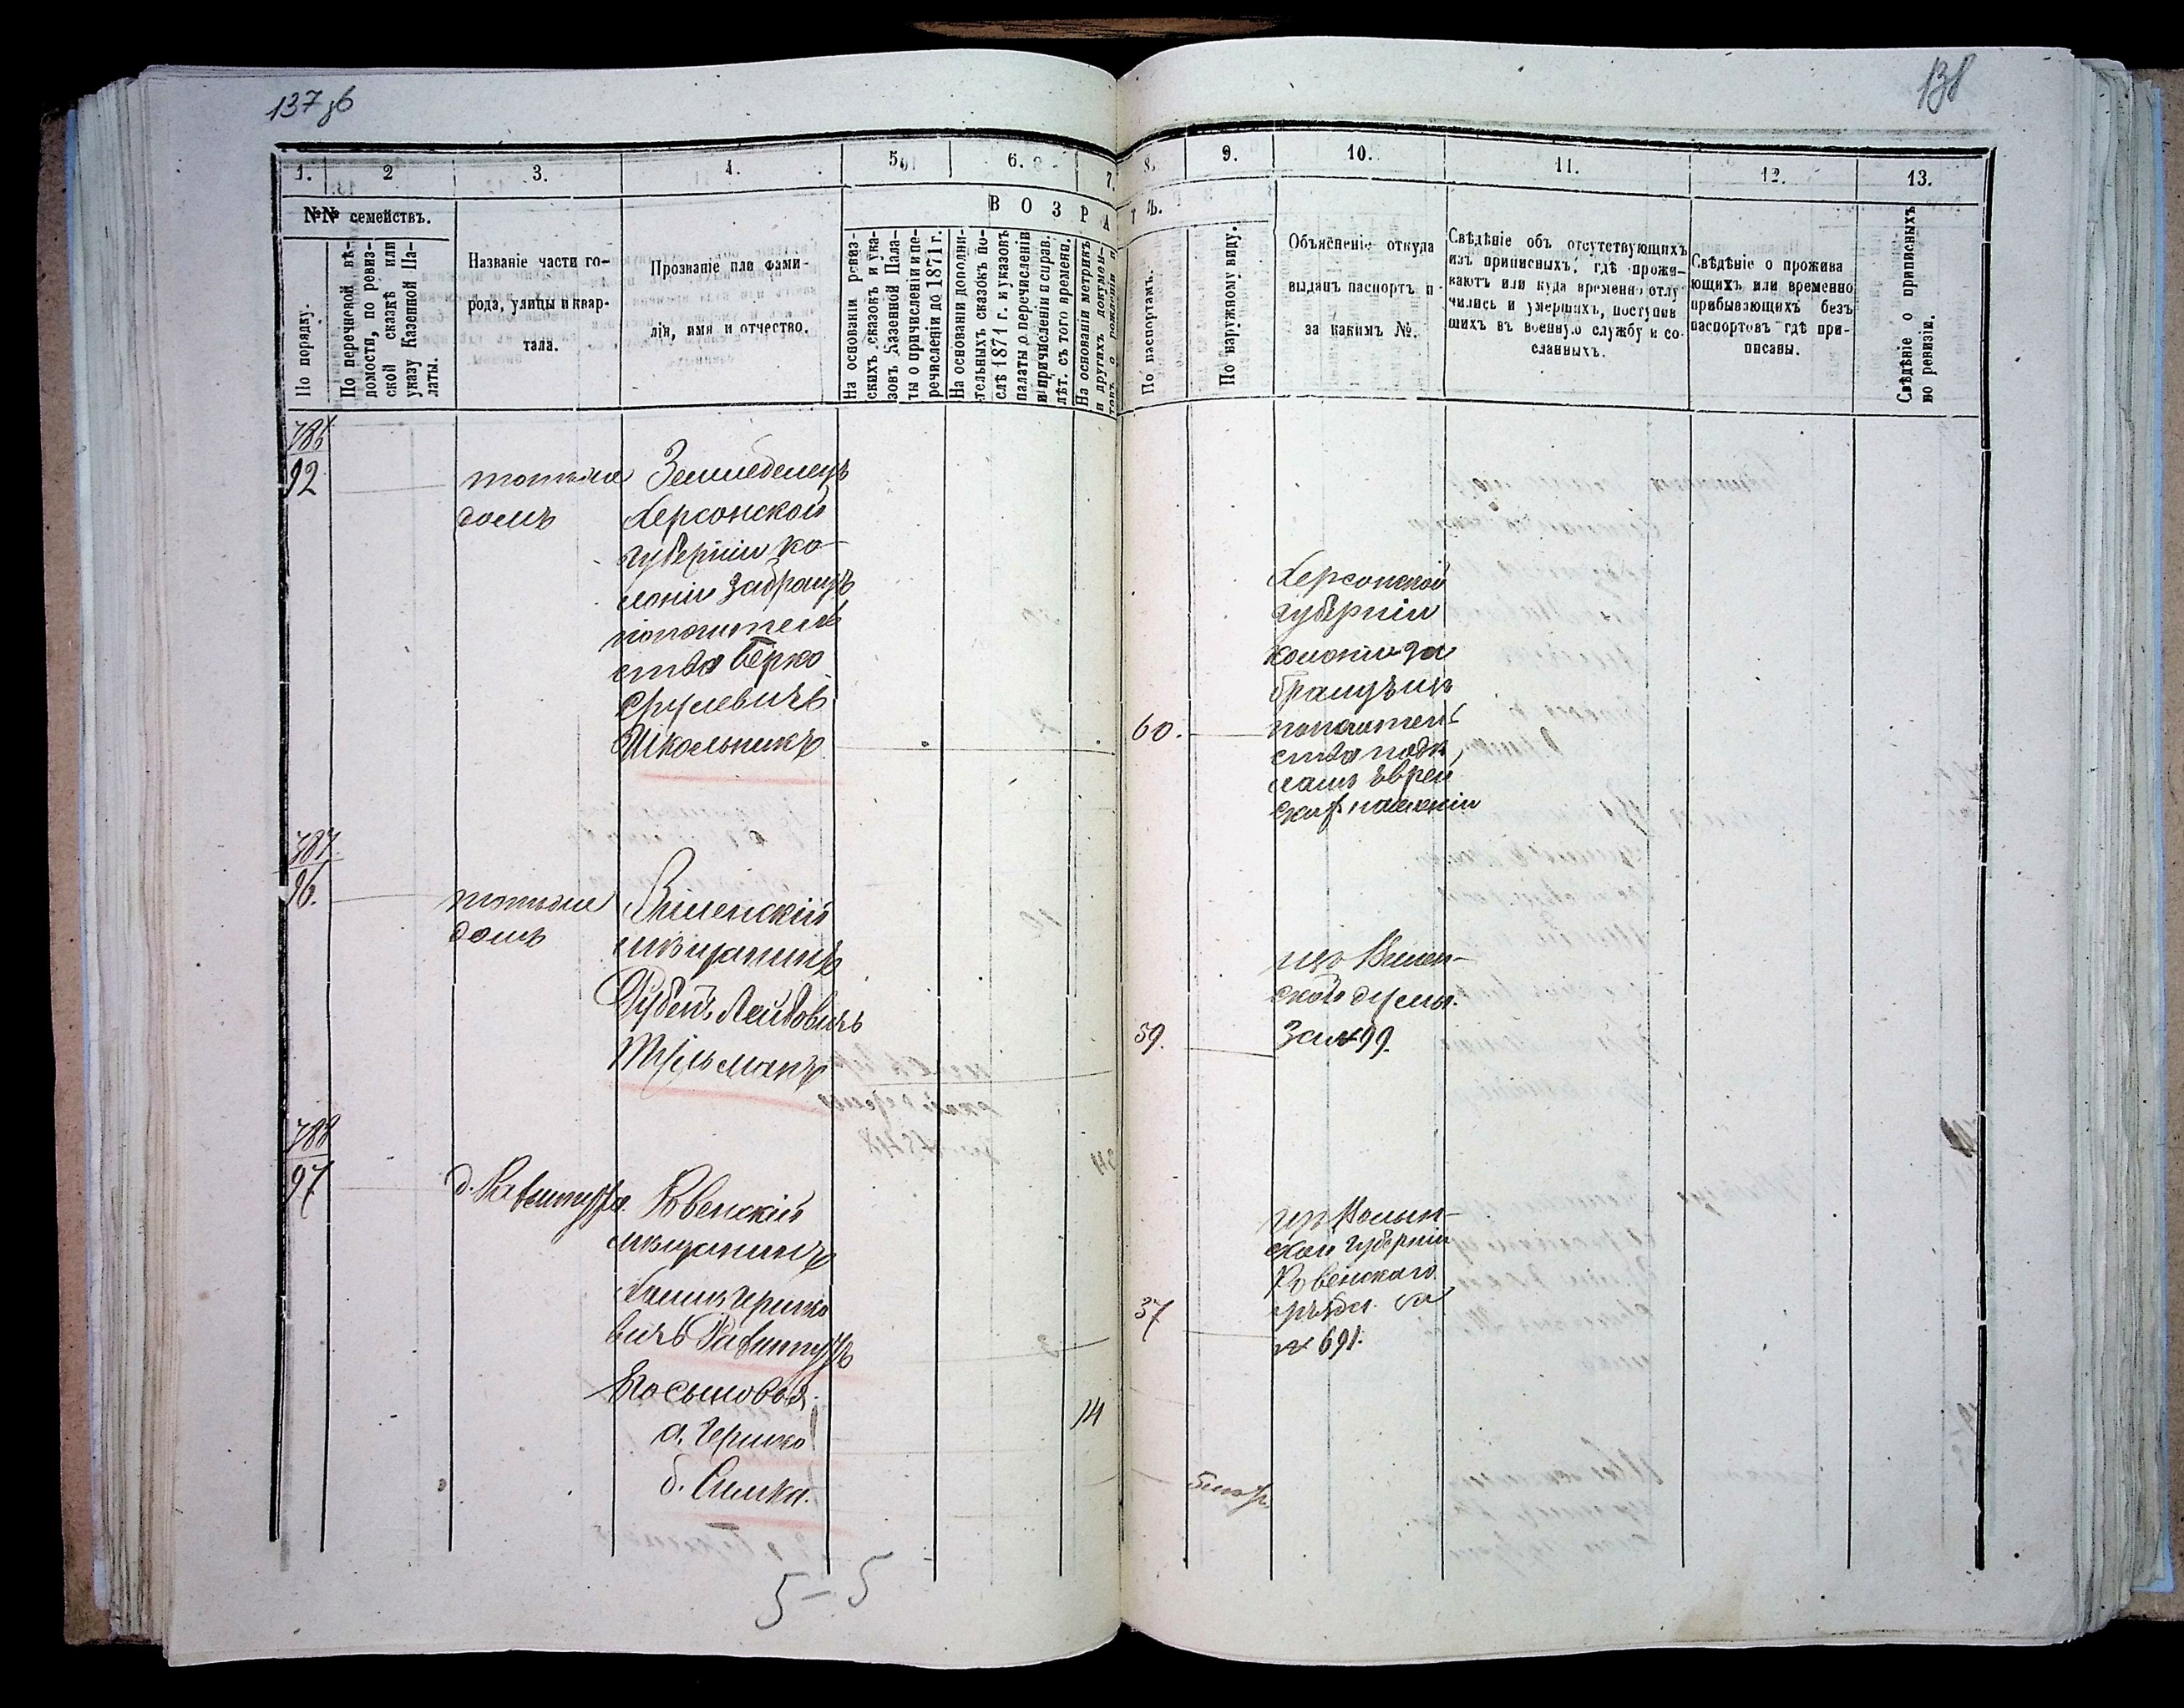 137 зв
138
1.
2
3.
4.
5
6.
7.
8.
9.
10.
11.
12.
13.
№№ семействъ.
По порядку.
По перечневой вѣ-
домости, по ревиз-
ской сказкѣ или
указу Казенной Па-
латы.
Названіе части го-
рода, улицы и квар-
тала.
Прозваніе или фами-
лія, имя и отчество.
ВОЗРА
ТЪ.
На основаніи ревиз-
скихъ сказокъ и ука-
зовъ Казенной Пала-
ты о причисленіи и пе-
речисленіи до 1871 г.
На основаніи дополни-
тельныхъ сказокъ по-
слѣ 1871 г. и указовъ
палаты о перечисленіи
и причисленіи и справ.
лѣт. съ того времени.
На основаніи метрикъ
и другихъ докумен-
товъ о рожденіи
По паспортамъ.
По наружному виду.
Объясненіе откуда
выданъ паспортъ и
за какимъ №.
Свѣдѣніе объ отсутствующихъ
изъ приписныхъ, гдѣ прожи-
ваютъ или куда временно отлу
чились и умершихъ, поступив
шихъ въ военную службу и со-
сланныхъ.
Свѣдѣніе о прожива
ющихъ или временно
прибывающихъ безъ
паспортовъ гдѣ при-
писаны.
Свѣдѣніе о приписныхъ
по ревизіи.
786
92
тотже
домъ
Земледелецъ
Херсонской
губерніи ко-
лоніи
попечитель
ства Берко
Срулевичъ
Школьникъ
60.
Херсонской
губерніи
колоніи За
попечитель
ства
787
96.
тотже
домъ
Виленскій
мѣщанинъ
Рубенъ Лейбовичъ
39.
изъ Вилен-
ской думы
За № 99.
788
97
Ровенскій
мѣщанинъ
Гершко
вичъ
Его сыновья
а, Гершко
б. Симха.
37
14
5
изъ Волын-
ской губерніи
Ровенскаго
уѣзда. За
№ 691.
5-5